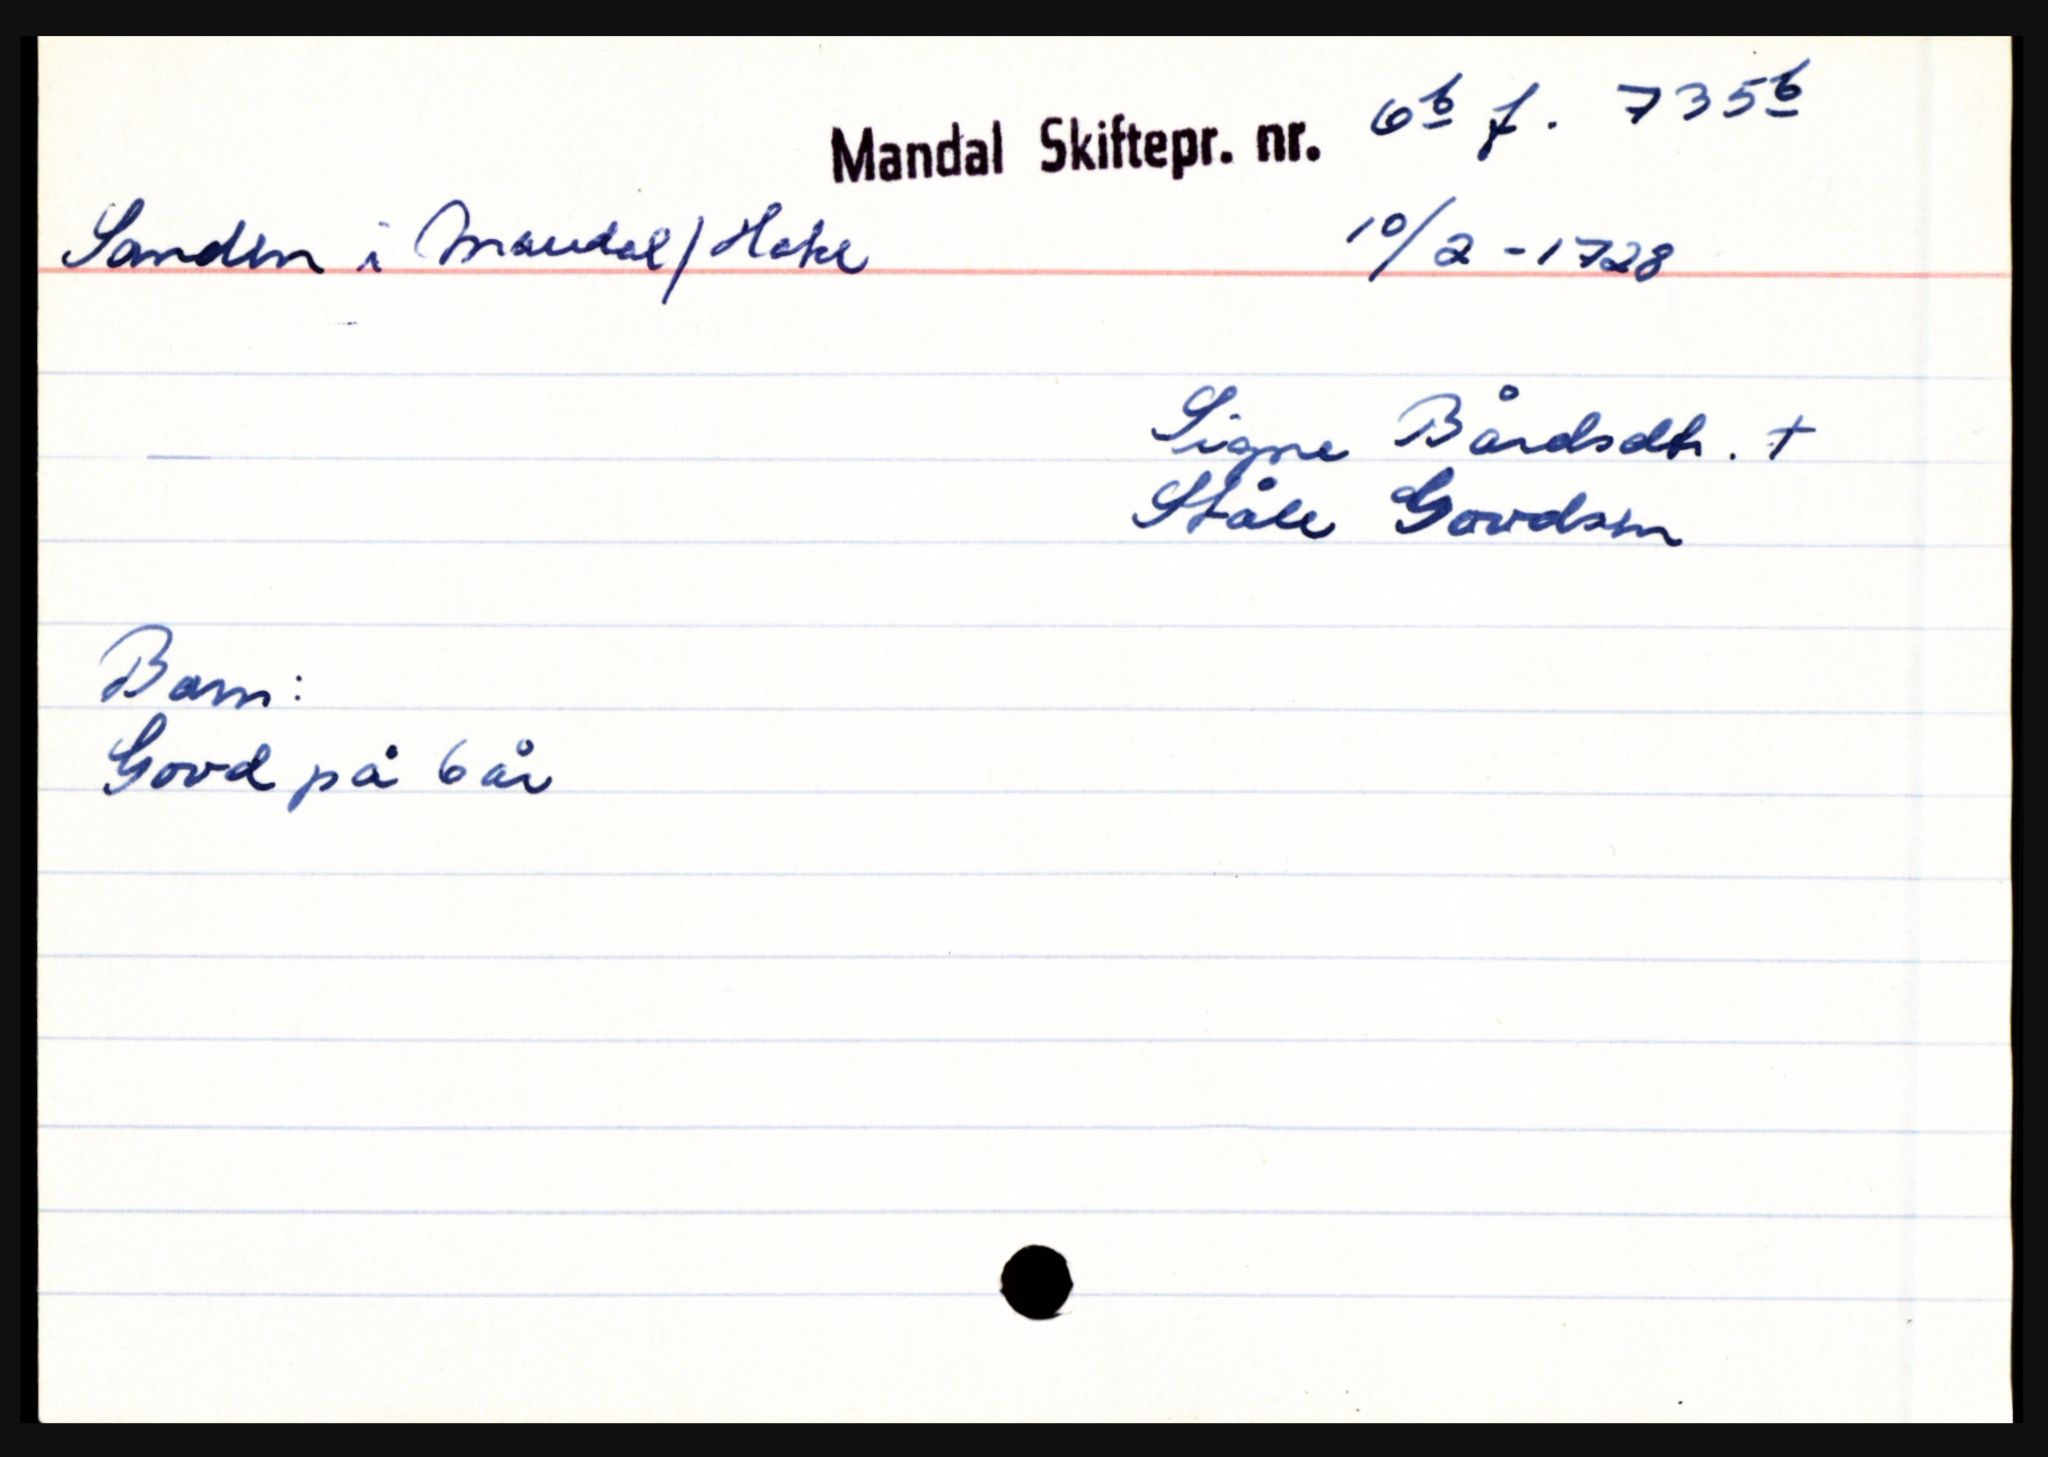 Mandal Skiftepr. nr. 6b f. 735b
Sanden i Mandal/Hake 10/2-1728
Signe Bårdsdtr. +
Ståle Govdsen
Barn:
Govd på 6 år